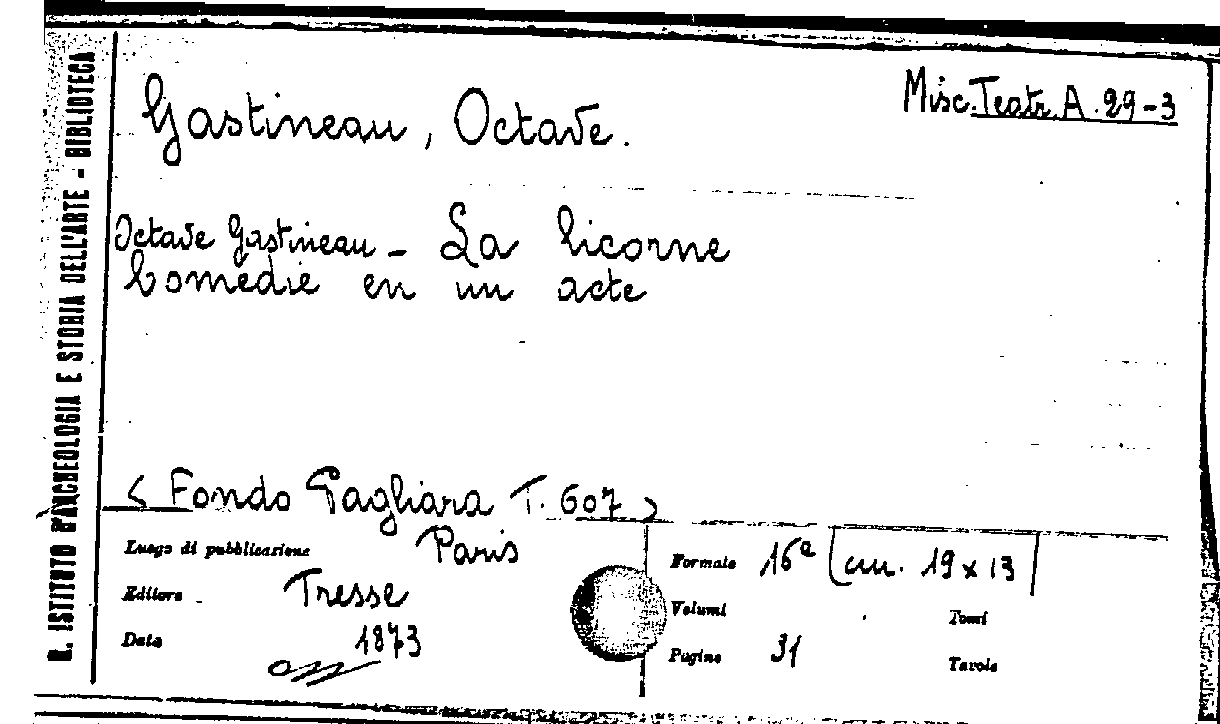 R. ISTITUTO D'ARCHEOLOGIA E STORIA DELL'ARTE - BIBLIOTECA
Misc. Teatr. A. 29-3
Gastineau, Octave.
Octave Gastineau - La licorne
Comedie en un acte
< Fondo Pagliara T. 607 >
Luogo di pubblicazione Paris
Editore Tresse
Data 1873
Formato 16° (cm. 19 x 13
Volumi
Tomi
Pagine 31
Tavole